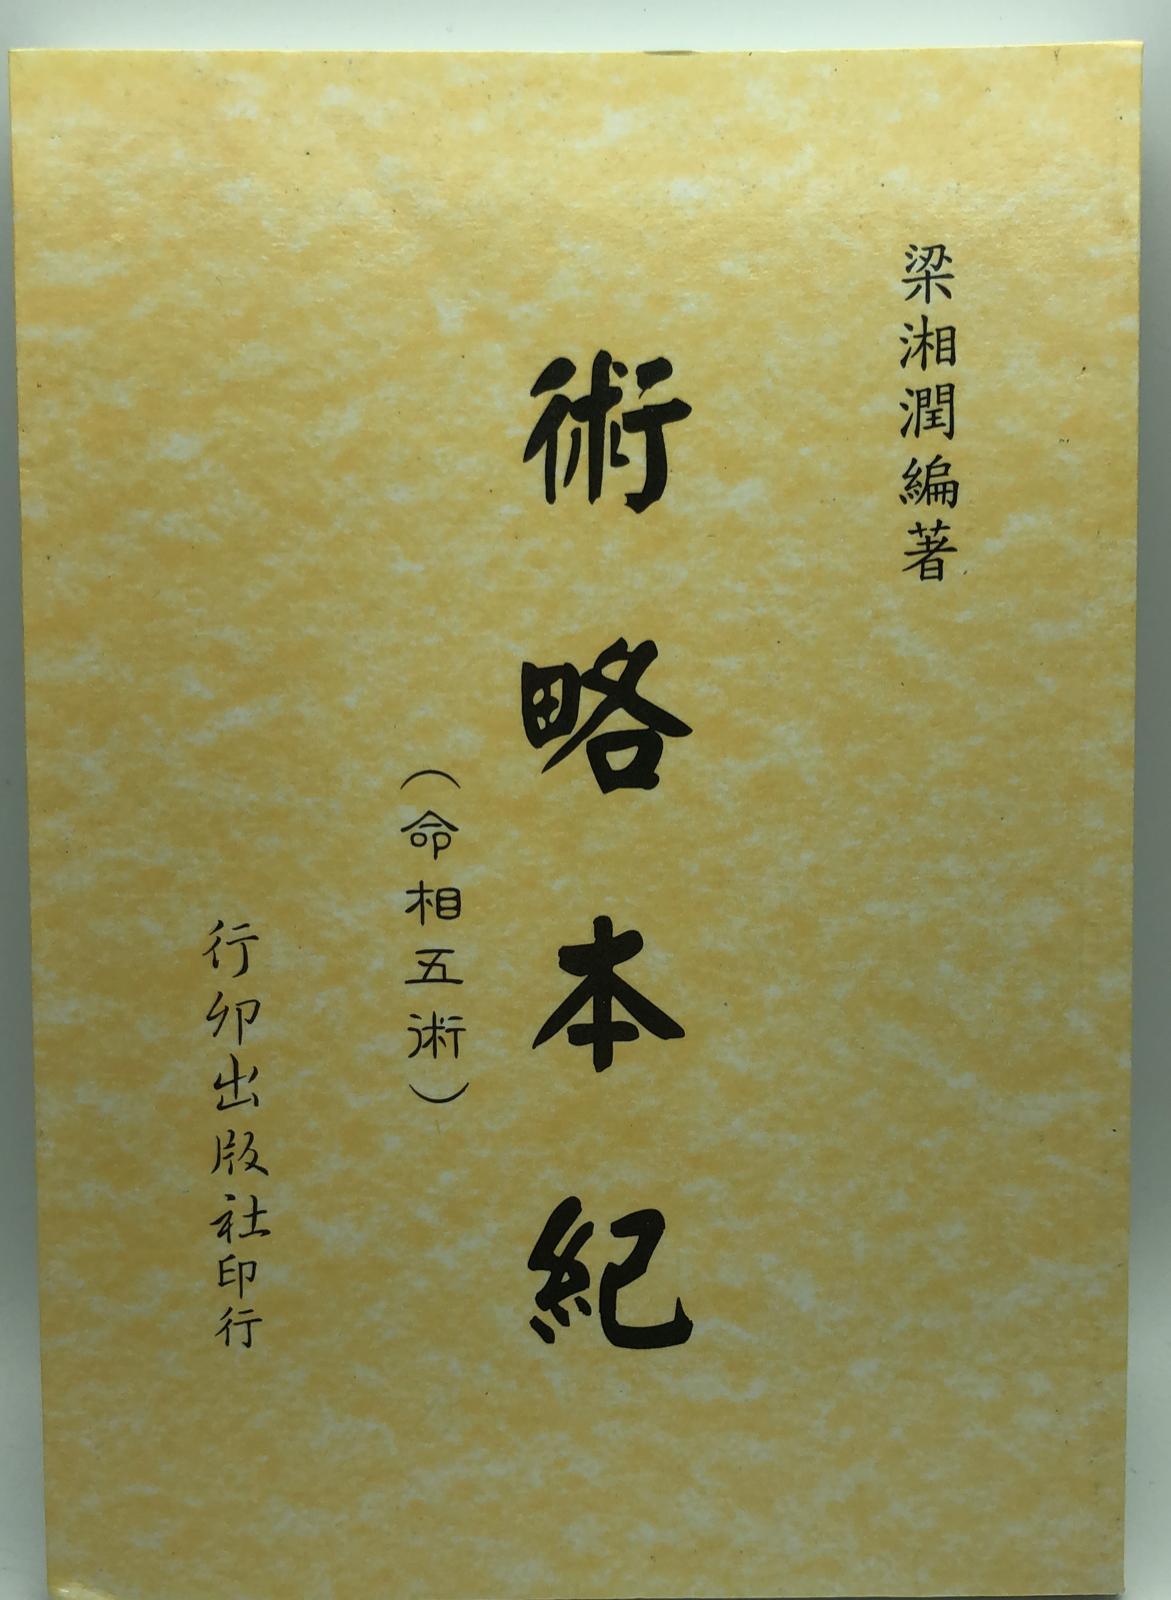 梁湘潤編著
術略本紀
（命相五術）
行卯出版社印行